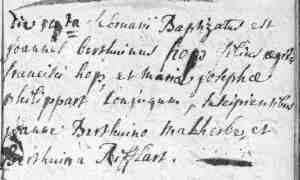 Die septa februarii Baptizatus est
joannes berthuinus hops filius
francisci hops et mariæ josephæ
philippart conjugum, suscipientibus
joanne Berthuino Malherbe et
Berthuina Rifflart.